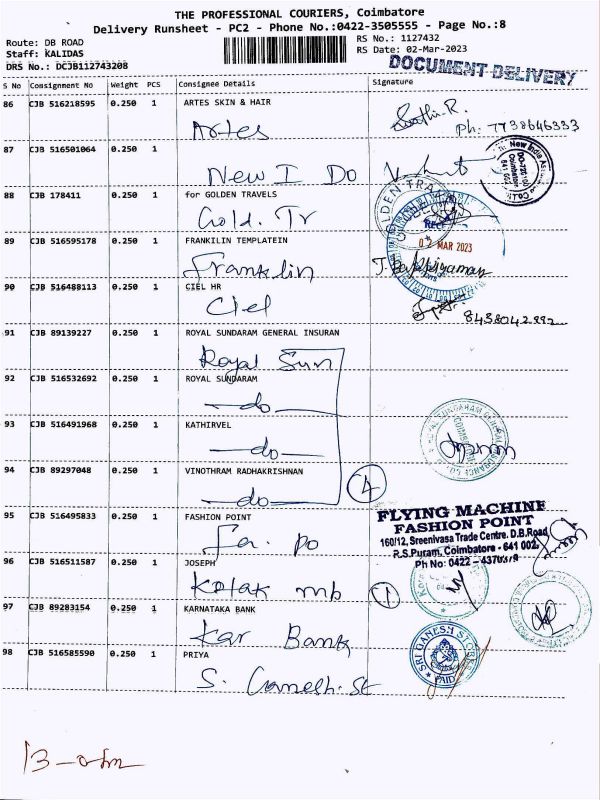 THE PROFESSIONAL COURIERS, Coimbatore
Delivery Runsheet - PC2 - Phone No.:0422-3505555 - Page No.:8
Route: DB ROAD
Staff: KALIDAS
DRS No.: DCJB112743208
RS No.: 1127432
RS Date: 02-Mar-2023
DOCUMENT DELIVERY
S No Consignment No Weight PCS Consignee Details Signature
86 CJB 516218595 0.250 1 ARTES SKIN & HAIR
Artes
Ph: 7738646333
87 CJB 516501064 0.250 1
New I Do
88 CJB 178411 0.250 1 for GOLDEN TRAVELS
Gold. Tr
89 CJB 516595178 0.250 1 FRANKILIN TEMPLATEIN
02 MAR 2023
Franklin
90 CJB 516488113 0.250 1 CIEL HR
Ciel
8438042892
91 CJB 89139227 0.250 1 ROYAL SUNDARAM GENERAL INSURAN
Royal Sun
92 CJB 516532692 0.250 1 ROYAL SUNDARAM
—do—
93 CJB 516491968 0.250 1 KATHIRVEL
—do—
94 CJB 89297048 0.250 1 VINOTHRAM RADHAKRISHNAN
—do—
4
95 CJB 516495833 0.250 1 FASHION POINT
Fa. po
FLYING MACHINE
FASHION POINT
160/12, Sreenivasa Trade Centre, D.B.Road
R.S.Puram, Coimbatore - 641 002.
Ph No: 0422 -
96 CJB 516511587 0.250 1 JOSEPH
Kotak mb
1
97 CJB 89283154 0.250 1 KARNATAKA BANK
Kar Bank
98 CJB 516585590 0.250 1 PRIYA
S. Ganesh. St
SRI GANESH STORES
PAID